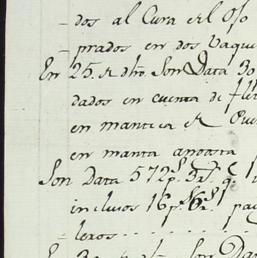 -dos al Cura del Oso
-prados en dos Vaque
En 25. de dho. Son Data 30
dados en cuenta de fle
en manteca de
en manta
Son Data 572 p. 5 r.
inclusos 16 p. 6 r. pa
leros
Son Da